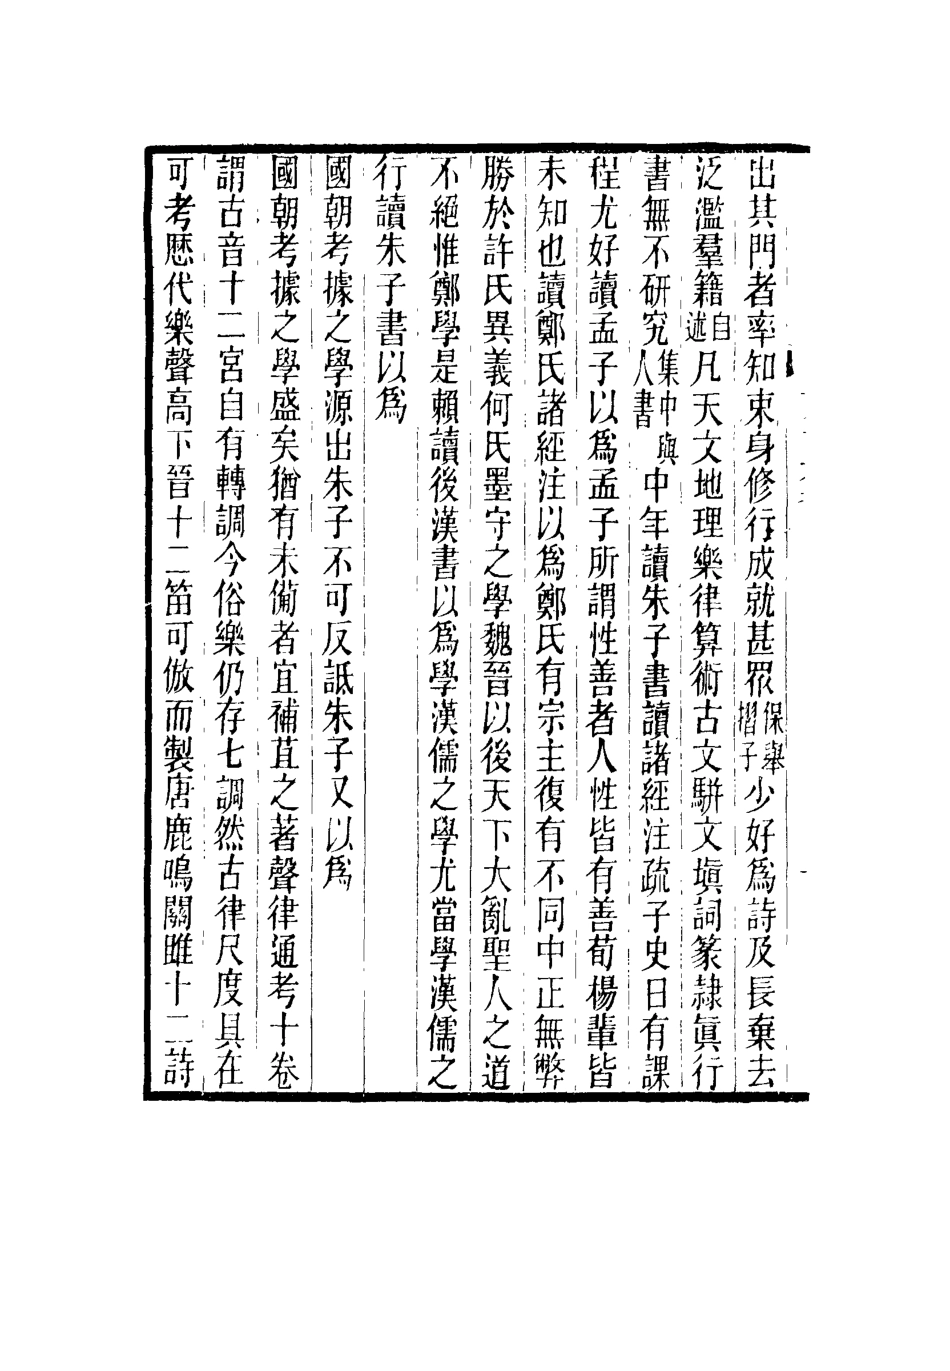 出其門者率知束身修行成就甚眾保舉摺子少好爲詩及長棄去
泛濫羣籍自述凡天文地理樂律算術古文駢文塡詞篆隷眞行
書無不硏究集中與人書中年讀朱子書讀諸經注疏子史日有課
程尤好讀孟子以爲孟子所謂性善者人性皆有善荀楊輩皆
未知也讀鄭氏諸經注以爲鄭氏有宗主復有不同中正無弊
勝於許氏異義何氏墨守之學魏晉以後天下大亂聖人之道
不絕惟鄭學是賴讀後漢書以爲學漢儒之學尤當學漢儒之
行讀朱子書以爲
國朝考據之學源出朱子不可反詆朱子又以爲
國朝考據之學盛矣猶有未備者宜補苴之著聲律通考十卷
謂古音十二宮自有轉調今俗樂仍存七調然古律尺度具在
可考歷代樂聲高下晉十二笛可倣而製唐鹿鳴關雎十二詩